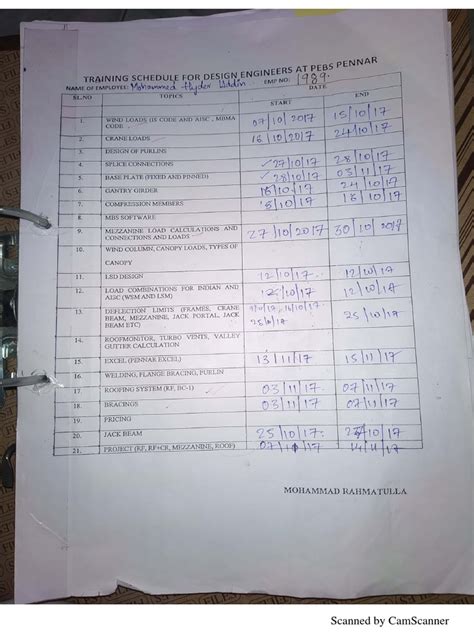 TRAINING SCHEDULE FOR DESIGN ENGINEERS AT PEBS PENNAR
NAME OF EMPLOYEE: Mohammed Hyder Uddin EMP NO: 1989.
SL.NO TOPICS DATE
START END
1. WIND LOADS (IS CODE AND AISC, MBMA CODE 07/10/2017 15/10/17
2. CRANE LOADS 16/10/2017 24/10/17
3. DESIGN OF PURLINS
4. SPLICE CONNECTIONS ✓27/10/17 28/10/17
5. BASE PLATE (FIXED AND PINNED) ✓28/10/17 03/11/17
6. GANTRY GIRDER 16/10/17 24/10/17
7. COMPRESSION MEMBERS 18/10/17 18/10/17
8. MBS SOFTWARE
9. MEZZANINE LOAD CALCULATIONS AND
CONNECTIONS AND LOADS 27/10/2017 30/10/2017
10. WIND COLUMN, CANOPY LOADS, TYPES OF
CANOPY
11. LSD DESIGN 12/10/17. 12/10/17
12. LOAD COMBINATIONS FOR INDIAN AND
AISC (WSM AND LSM) 12/10/17 12/10/17
13. DEFLECTION LIMITS (FRAMES, CRANE
BEAM, MEZZANINE, JACK PORTAL, JACK
BEAM ETC) 25/10/17 25/10/17
14. ROOFMONITOR, TURBO VENTS, VALLEY
GUTTER CALCULATION
15. EXCEL (PENNAR EXCEL) 13/11/17 15/11/17
16. WELDING, FLANGE BRACING, PURLIN
17. ROOFING SYSTEM (RF, BC-1) 03/11/17 07/11/17
18. BRACINGS 03/11/17 07/11/17
19. PRICING
20. JACK BEAM 25/10/17 /10/17
21. PROJECT (RF, RF+CR, MEZZANINE, ROOF) 07/11/17 14/11/17
MOHAMMAD RAHMATULLA
Scanned by CamScanner